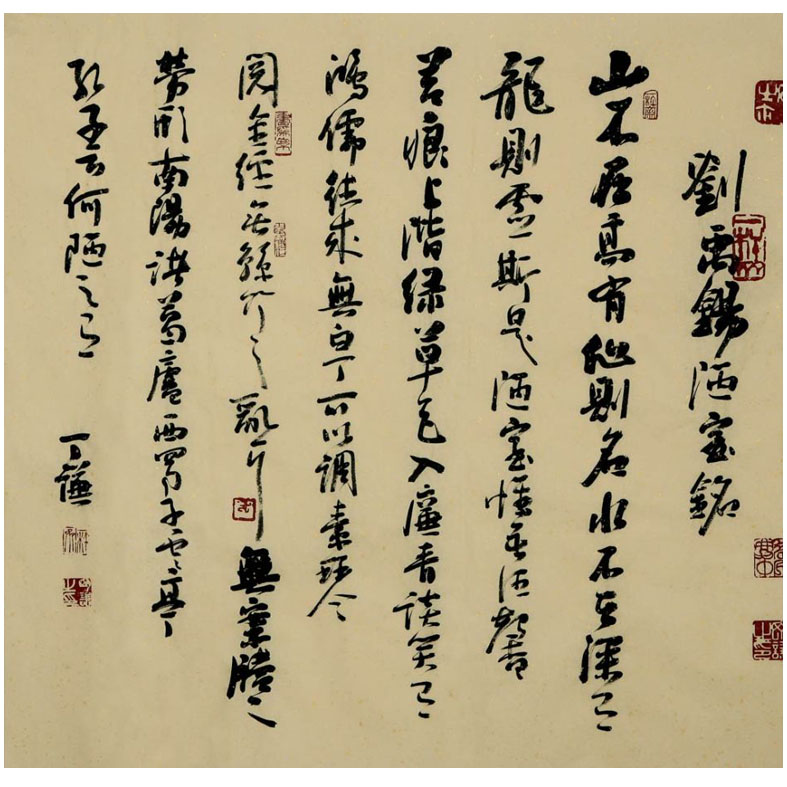 劉禹錫陋室銘
山不在高有仙則名水不在深有
龍則靈斯是陋室惟吾德馨
苔痕上階緑草色入廉青談笑有
鴻儒往來無白丁可以調素琴
閱金經無絲竹之亂耳無案牘之
勞形南陽諸葛廬西蜀子雲亭
孔子云何陋之有
丁謙